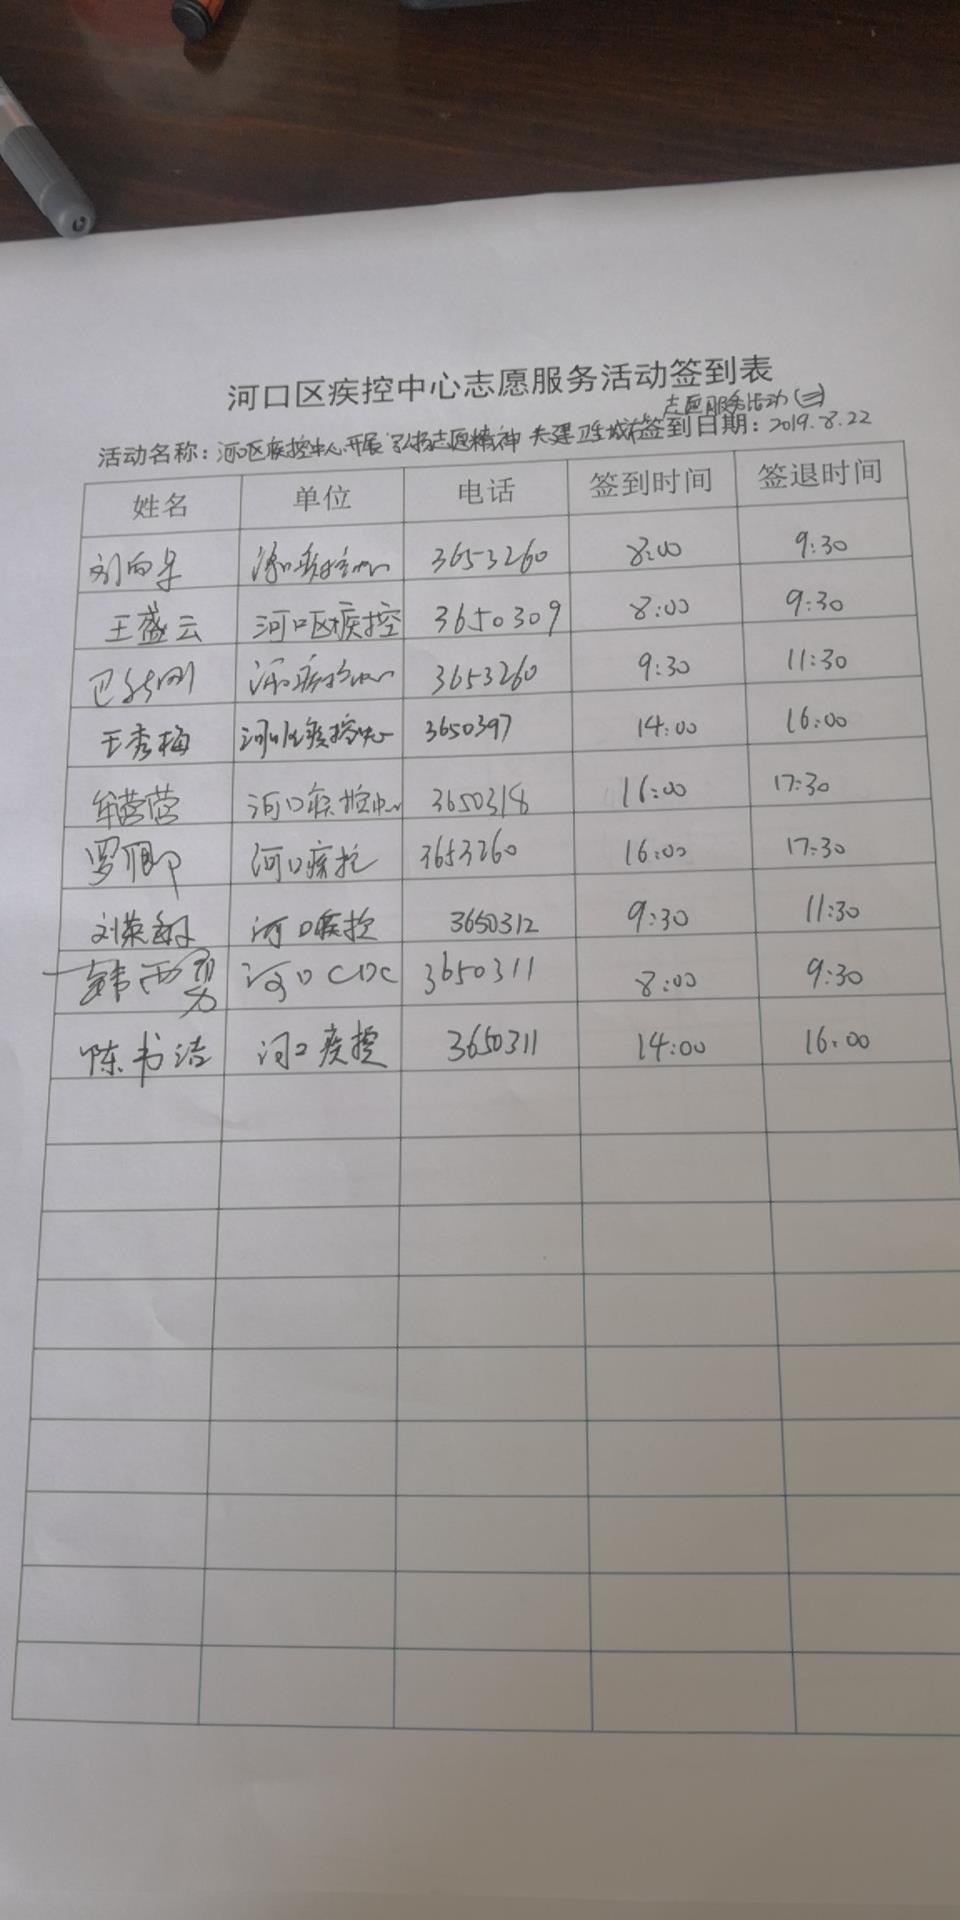 河口区疾控中心志愿服务活动签到表
志愿服务活动(三)
活动名称：河口区疾控中心开展弘扬志愿精神 共建卫生城市 签到日期：2019.8.22
姓名 单位 电话 签到时间 签退时间
刘向 河口疾控中心 3653260 8:00 9:30
王盛云 河口区疾控 3650309 8:00 9:30
巴 河口疾控中心 3653260 9:30 11:30
王秀梅 河口区疾控中心 3650397 14:00 16:00
牟营营 河口疾控中心 3650318 16:00 17:30
罗卿 河口疾控 3653260 16:00 17:30
刘荣 河口疾控 3650312 9:30 11:30
韩西 河口CDC 3650311 8:00 9:30
陈书洁 河口疾控 3650311 14:00 16:00